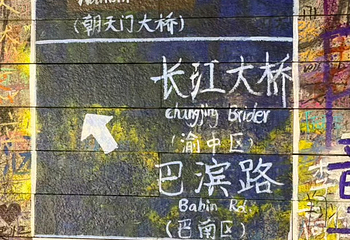 (朝天门大桥)
长江大桥
(渝中区)
巴滨路
Babin Rd.
(巴南区)
李